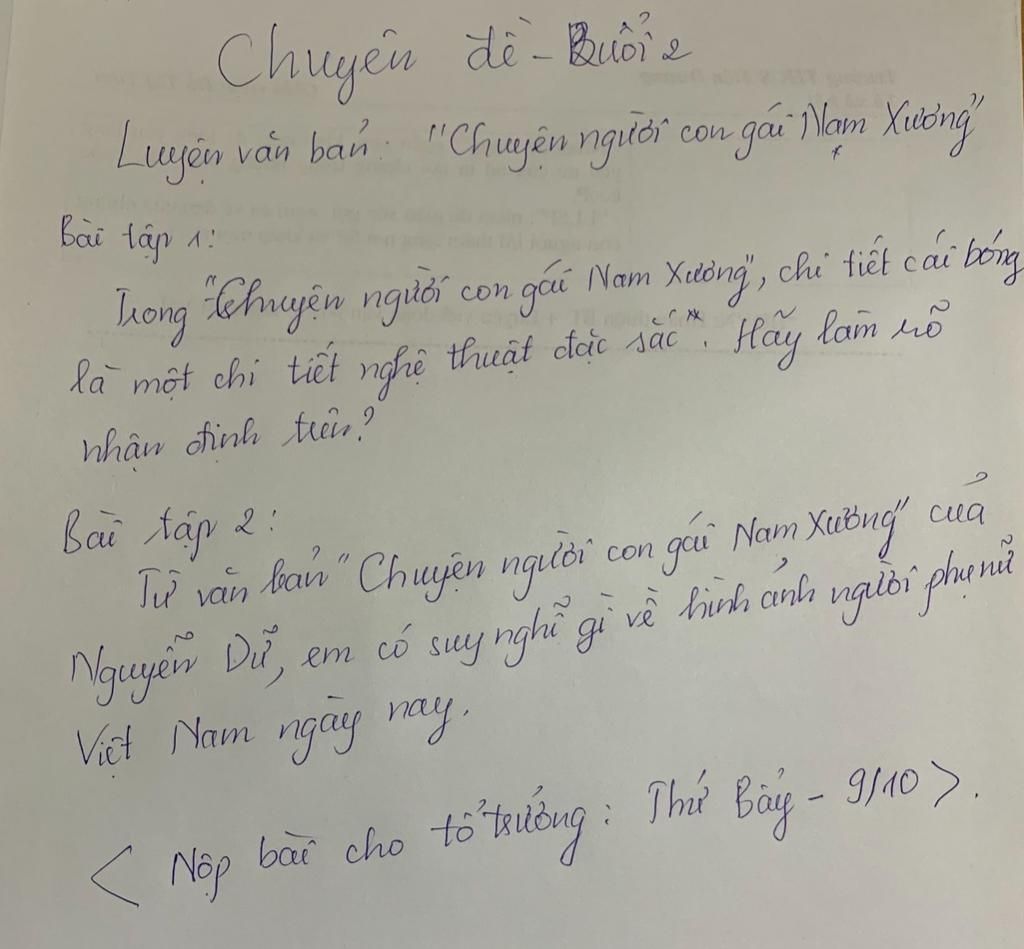 Chuyên đề - Buổi 2
Luyện văn bản: "Chuyện người con gái Nam Xương"
Bài tập 1:
Trong "Chuyện người con gái Nam Xương", chi tiết cái bóng
là một chi tiết nghệ thuật đặc sắc. Hãy làm rõ
nhận định trên?
Bài tập 2:
Từ văn bản "Chuyện người con gái Nam Xương" của
Nguyễn Dữ, em có suy nghĩ gì về hình ảnh người phụ nữ
Việt Nam ngày nay.
< Nộp bài cho tổ trưởng: Thứ Bảy - 9/10 >.